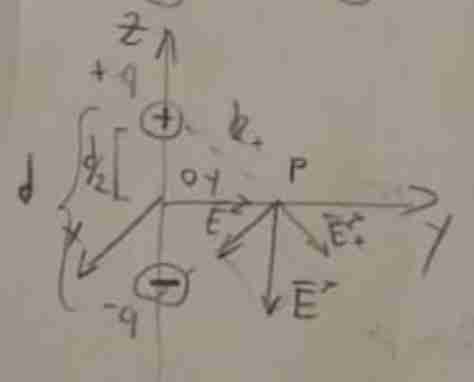 Z
+q
+
d
d/2
O y
P
E⁻
E⃗₊
y
x
−
-q
E⃗